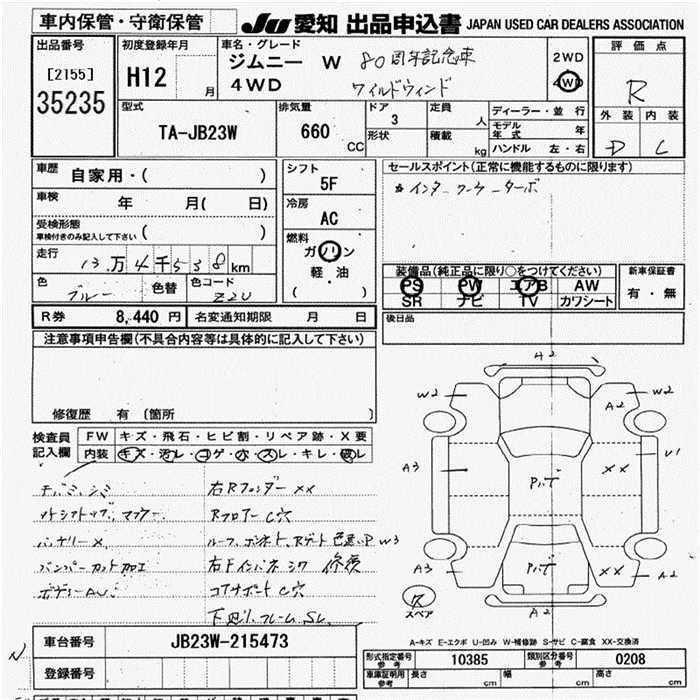 車内保管・守衛保管
JU 愛知 出品申込書 JAPAN USED CAR DEALERS ASSOCIATION
出品番号
[2155]
35235
初度登録年月
H12 月
車名・グレード
ジムニー W 80周年記念車
4WD ワイルドウィンド
2WD
4WD
評価点
R
外装 内装
D C
型式
TA-JB23W
排気量
660 CC
ドア
3
形状
定員
人
積載
kg
ディーラー・並行
モデル年式 年
ハンドル 左・右
車歴
自家用・( )
車検 年 月( 日)
受検形態
車検付きのみ記入して下さい ( )
走行
13万4千538km
色
ブルー
色替
色コード
Z2U
シフト
5F
冷房
AC
燃料
ガソリン
軽・油
( )
セールスポイント(正常に機能するものに限ります)
インタークーラーターボ
装備品(純正品に限り○をつけてください)
PS PW エアB AW
SR ナビ TV カワシート
新車保証書
有・無
R券 8,440 円 名変通知期限 月 日
後日品
注意事項申告欄(不具合内容等は具体的に記入して下さい)
修復歴 有〔箇所 〕
検査員
記入欄
FW キズ・飛石・ヒビ割・リペア跡・X要
内装 キズ・汚レ・コゲ・穴・スレ・キレ・破レ
右Rフェンダー XX
マフラー
Rフロアー C穴
バッテリーX
ルーフ、ボンネット、Rゲート色違いP W3
バンパーカット加工
右Fインパネ シワ 修復
コアサポート C穴
下廻り、フレーム S
A2
W2
W2
A2
A3
XX
U1
Pバケ
A3
Pバケ
XX
A2
A2
スペア
A-キズ E-エクボ U-凹み W-補修跡 S-サビ C-腐食 XX-交換済
車台番号 JB23W-215473
登録番号
型式指定番号
参考
10385
類別区分番号
参考
0208
車庫証明用
参考
長さ cm 幅 cm 高さ cm